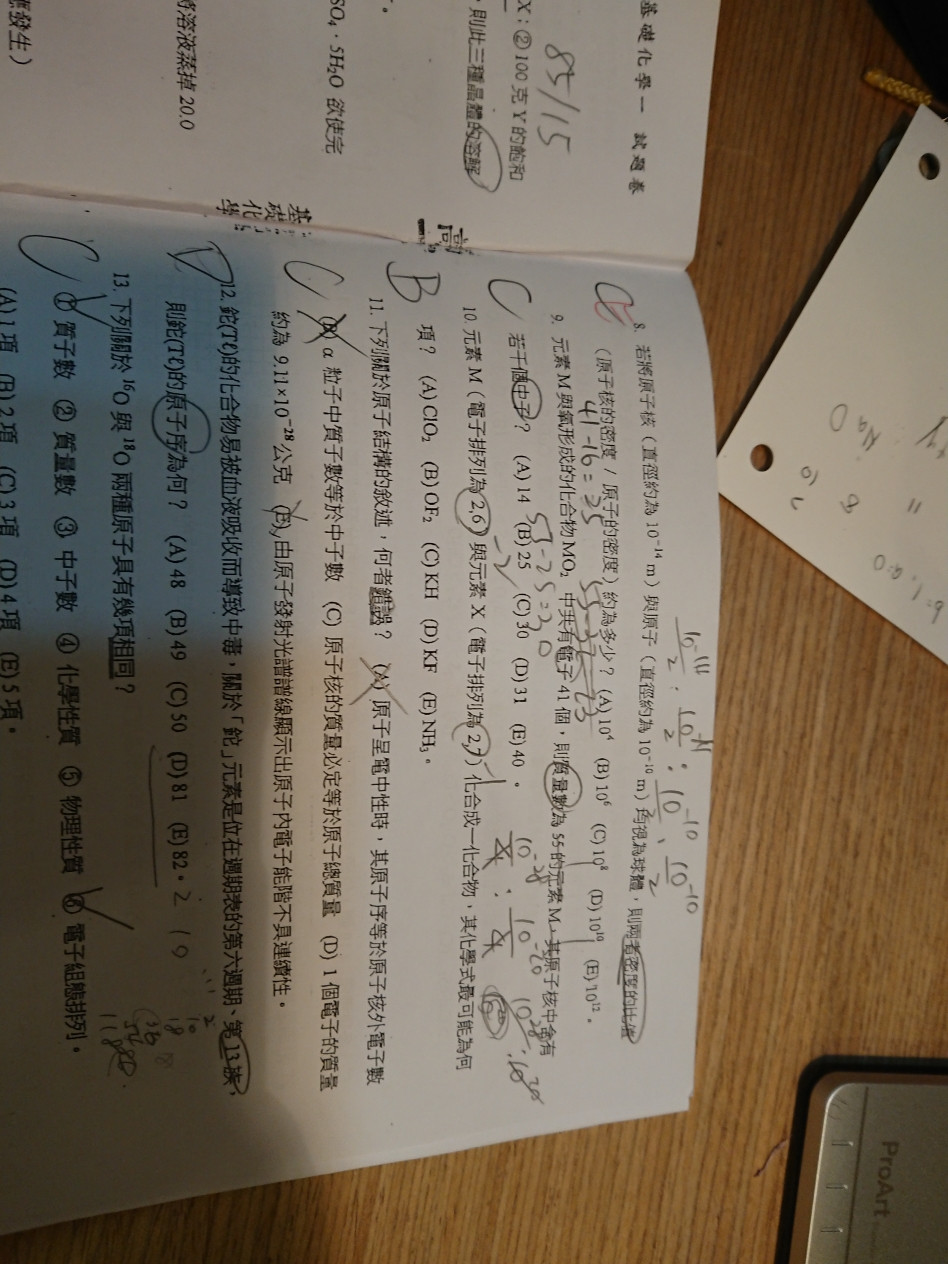 基礎化學一 試題卷
X:②100 克 Y 的飽和
,則此三種晶體的溶解
85/15
SO₄·5H₂O 欲使完
將溶液蒸掉 20.0
應發生)
基礎化學
8. 若將原子核(直徑約為 10⁻¹⁴ m)與原子(直徑約為 10⁻¹⁰ m)均視為球體,則兩者密度的比值
(原子核的密度/原子的密度)約為多少? (A) 10⁴ (B) 10⁶ (C) 10⁸ (D) 10¹⁰ (E) 10¹²。
41-16=25
9. 元素 M 與氧形成的化合物 MO₂ 中共有電子 41 個,則質量數為 55 的元素 M,其原子核中含有
C
若干個中子? (A) 14 (B) 25 (C) 30 (D) 31 (E) 40。
55-25=30
10. 元素 M(電子排列為 2,6)與元素 X(電子排列為 2,7)化合成一化合物,其化學式最可能為何
B
項? (A) ClO₂ (B) OF₂ (C) KH (D) KF (E) NH₃。
11. 下列關於原子結構的敘述,何者錯誤? (A) 原子呈電中性時,其原子序等於原子核外電子數
C
(B) α 粒子中質子數等於中子數 (C) 原子核的質量必定等於原子總質量 (D) 1 個電子的質量
約為 9.11×10⁻²⁸ 公克 (E) 由原子發射光譜譜線顯示出原子內電子能階不具連續性。
D
12. 鉈(Tl)的化合物易被血液吸收而導致中毒,關於「鉈」元素是位在週期表的第六週期、第 13 族,
則鉈(Tl)的原子序為何? (A) 48 (B) 49 (C) 50 (D) 81 (E) 82。
13. 下列關於 ¹⁶O 與 ¹⁸O 兩種原子具有幾項相同?
C
① 質子數 ② 質量數 ③ 中子數 ④ 化學性質 ⑤ 物理性質 ⑥ 電子組態排列。
(A) 1 項 (B) 2 項 (C) 3 項 (D) 4 項 (E) 5 項。
ProArt